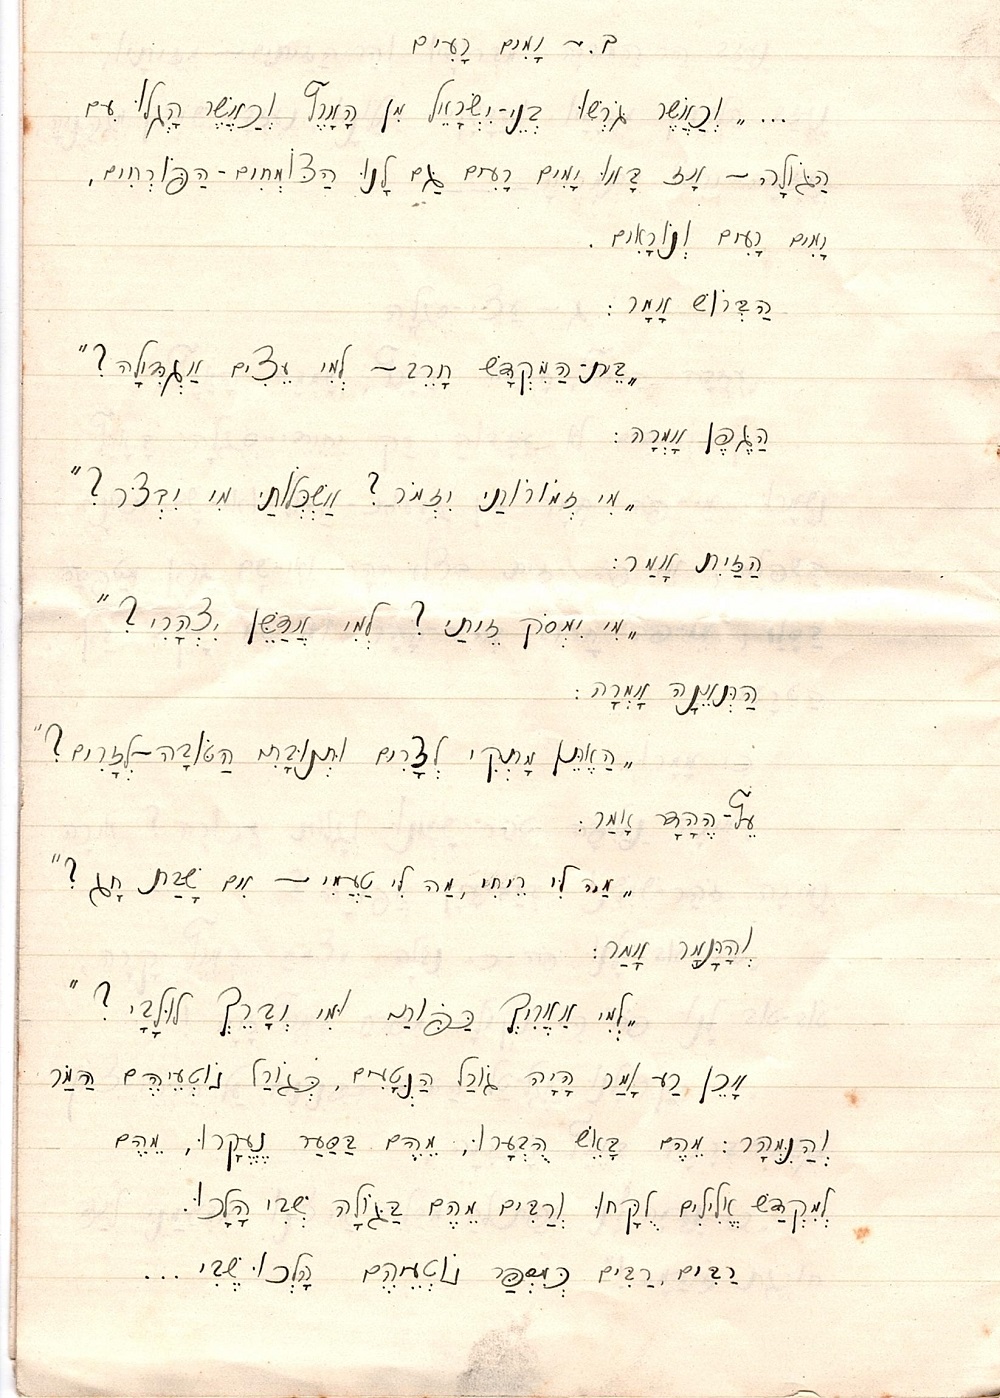 ב. ~ יָמִים רָעִים
... „ וְכַאֲשֶׁר גֹּרְשׁוּ בְּנֵי-יִשְׂרָאֵל מִן הָאָרֶץ וְכַאֲשֶׁר הָגְלוּ עִם
הַגּוֹלָה ~ אָז בָּאוּ יָמִים רָעִים גַּם לָנוּ הַצּוֹמְחִים-הַפּוֹרְחִים,
יָמִים רָעִים וְנוֹרָאִים .
הַבְּרוֹשׁ אָמַר :
„בֵּית-הַמִּקְדָּשׁ חָרֵב ~ לְמִי עֵצִים אֲגַדֵּילָה ?"
הַגֶּפֶן אָמְרָה :
„מִי זְמוֹרוֹתַי יִזְמֹר ? אַשְׁכְּלוֹתַי מִי יִבְצֹר ?"
הַזַּיִת אָמַר :
„מִי יִמְסֹק זֵיתַי ? לְמִי אֲדַשֵּׁן יִצְהָרִי ?"
הַתְּאֵנָה אָמְרָה :
„הַאֶתֵּן מָתְקִי לְצָרִים וּתְנוּבָתִי הַטּוֹבָה ~ לְזָרִים ?"
עֵץ-הֶהָדָר אָמַר :
„מַה לִּי רֵיחִי, מַה לִּי טַעֲמִי ~ אִם שָׁבַת חָג ?"
וְהַתָּמָר אָמַר :
„לְמִי אַאֲרִיךְ כַּפּוֹתַי וּמִי יְבָרֵךְ לוּלָבִי ?"
אָכֵן רַע וָמַר הָיָה גּוֹרַל הַנְּטָעִים, כְּגוֹרַל נוֹטְעֵיהֶם הַמַּר
וְהַנִּמְהָר : מֵהֶם בָּאֵשׁ הֻבְעָרוּ, מֵהֶם בַּסַּעַר נֶעֶקָרוּ, מֵהֶם
לְמִקְדַּשׁ אֱלִילִים לֻקָּחוּ וְרַבִּים מֵהֶם בַּגּוֹלָה שְׁבִי הָלָכוּ.
רַבִּים, רַבִּים כְּמִסְפַּר נוֹטְעֵיהֶם הָלְכוּ שֶׁבִי ...